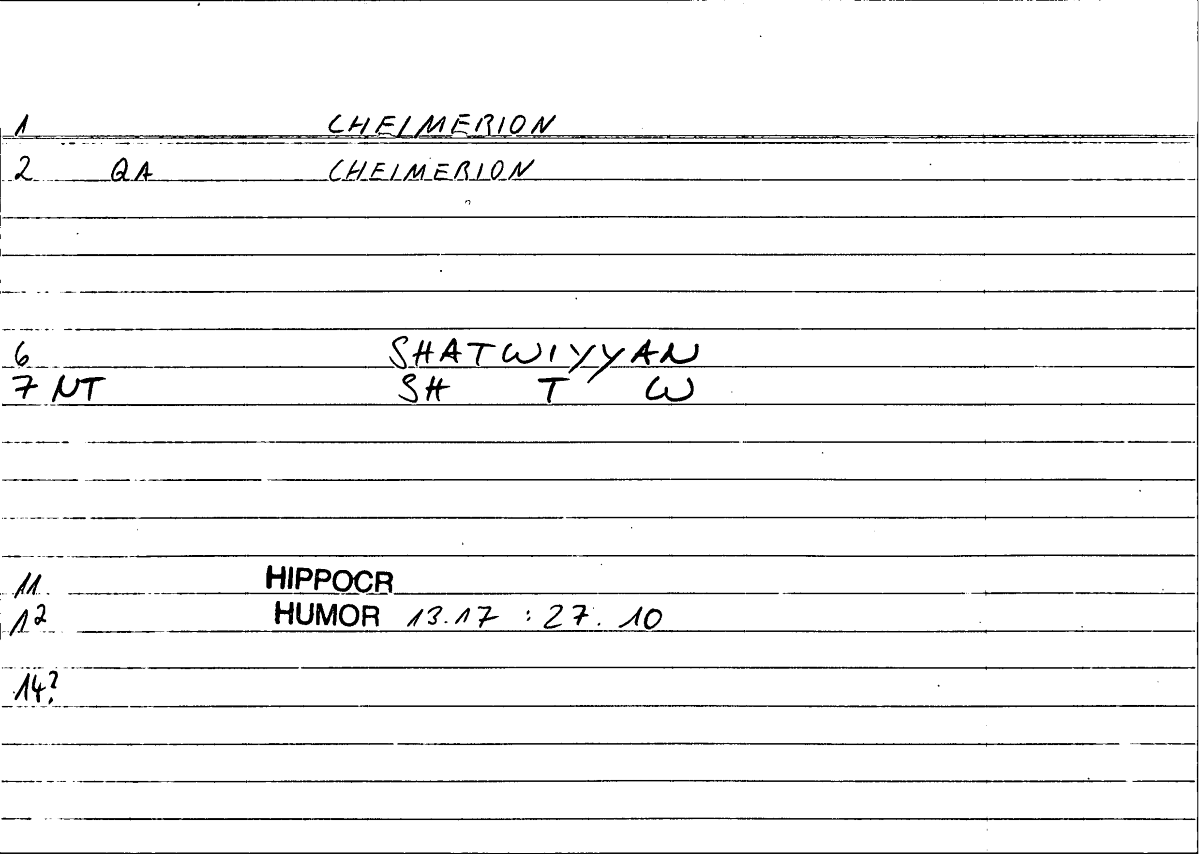 1 CHEIMERION
2 QA CHEIMERION
6 SHATWIYYAN
7 NT SH T W
11 HIPPOCR
12 HUMOR 13.17 : 27.10
14?